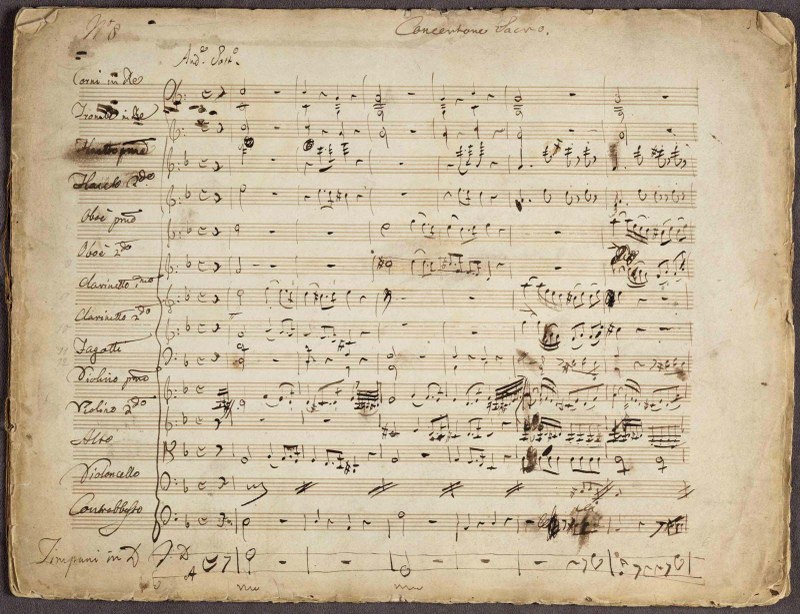 No 8
Concertone Sacro.
And.e Sost.o
Corni in Re
Trombe in Re
Flauto pmo
Flauto 2do
Oboè pmo
Oboè 2do
Clarinetto pmo
Clarinetto 2do
Fagotti
Violino pmo
Violino 2do
Alto
Violoncello
Contrabbasso
Timpani in D
D
A